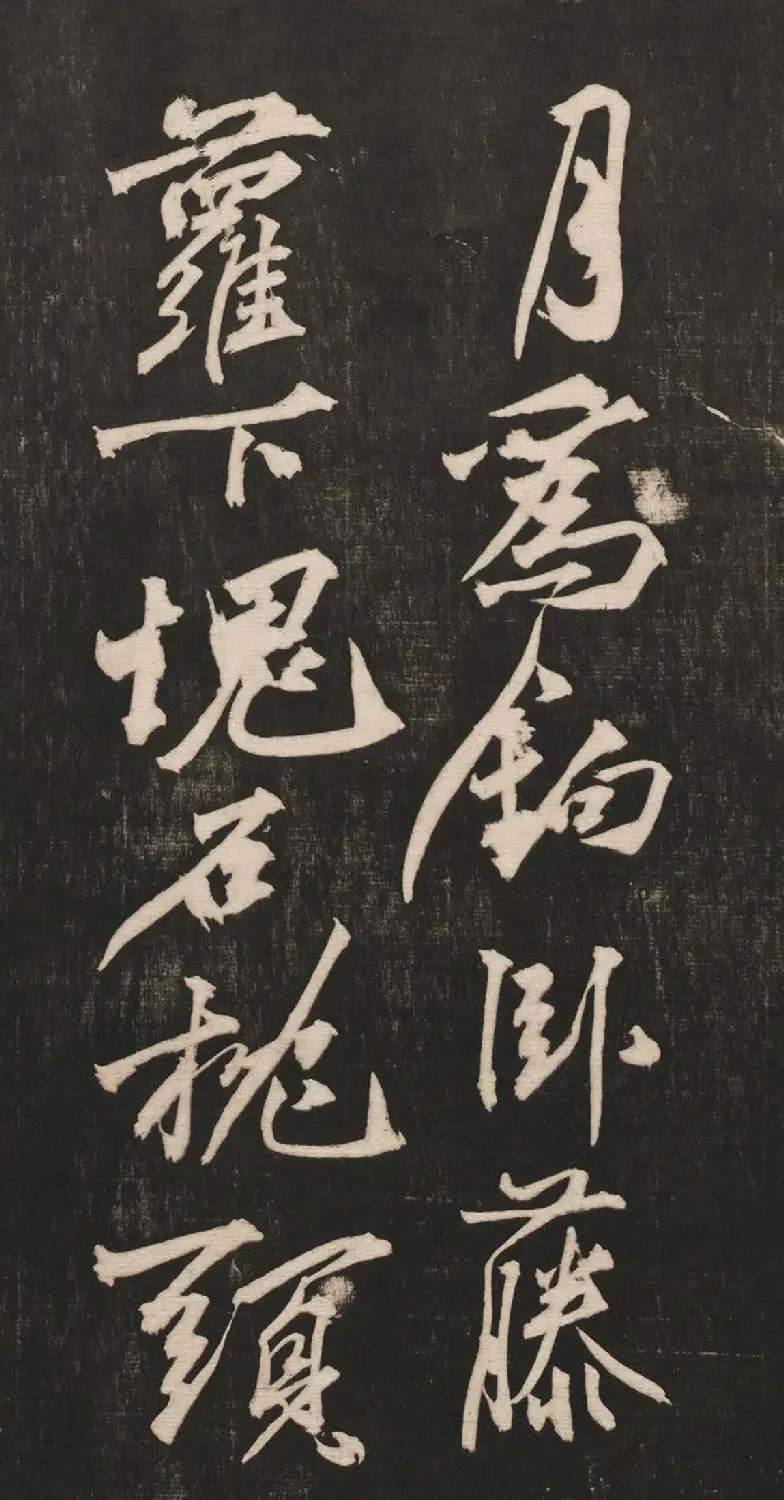 月為鈎臥藤
蘿下塊石枕頭